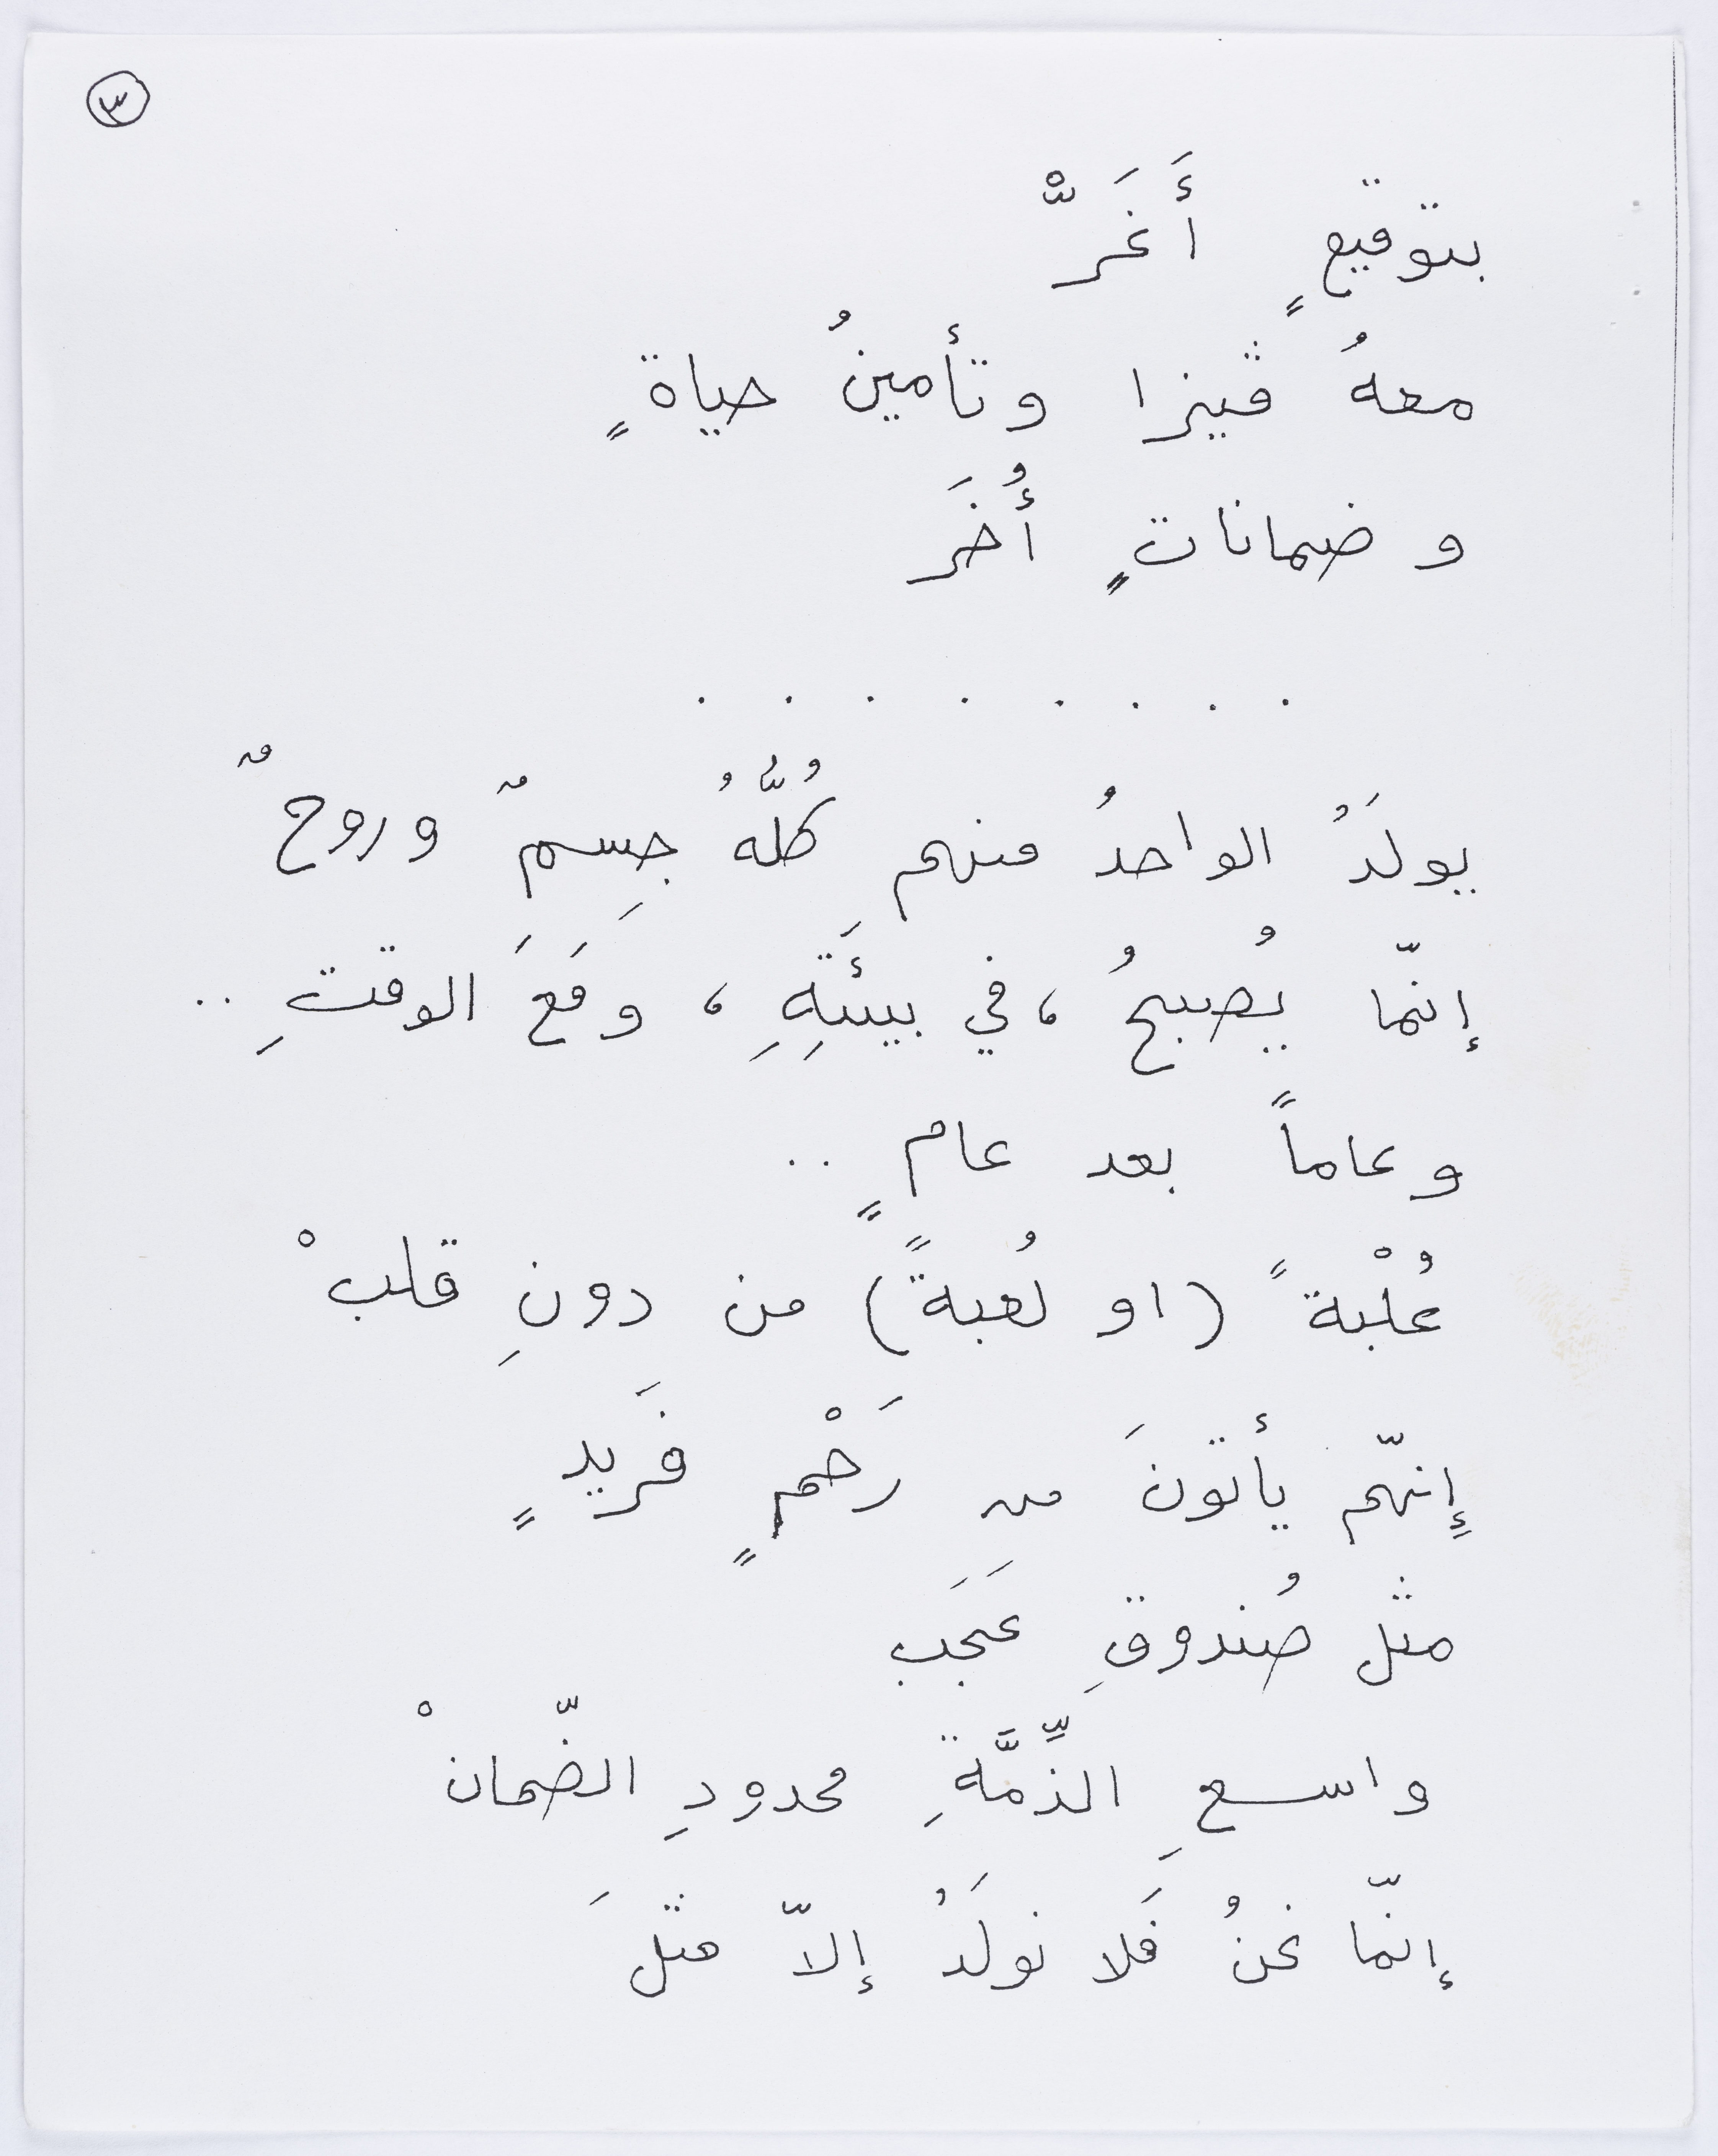 ٣
بتوقيعٍ أَغَرّْ
معهُ ڤيزا وتأمينُ حياةٍ
وضماناتٍ أُخَر
. . . . . . . .
يولَدُ الواحدُ منهم كُلُّهُ جِسمٌ وروحٌ
إنّما يُصبحُ ، في بيئَتِهِ ، ومَعَ الوقتِ ..
وعاماً بعد عامٍ ..
عُلْبةً (او لُعبةً) من دونِ قلبْ
إِنهّم يأتونَ من رَحْمٍ فَريدٍ
مثل صُندوقِ عَجَب
واسعِ الذِّمَّةِ محدودِ الضّمانْ
إنّما نحنُ فَلا نولَدُ إلاّ مثلَ